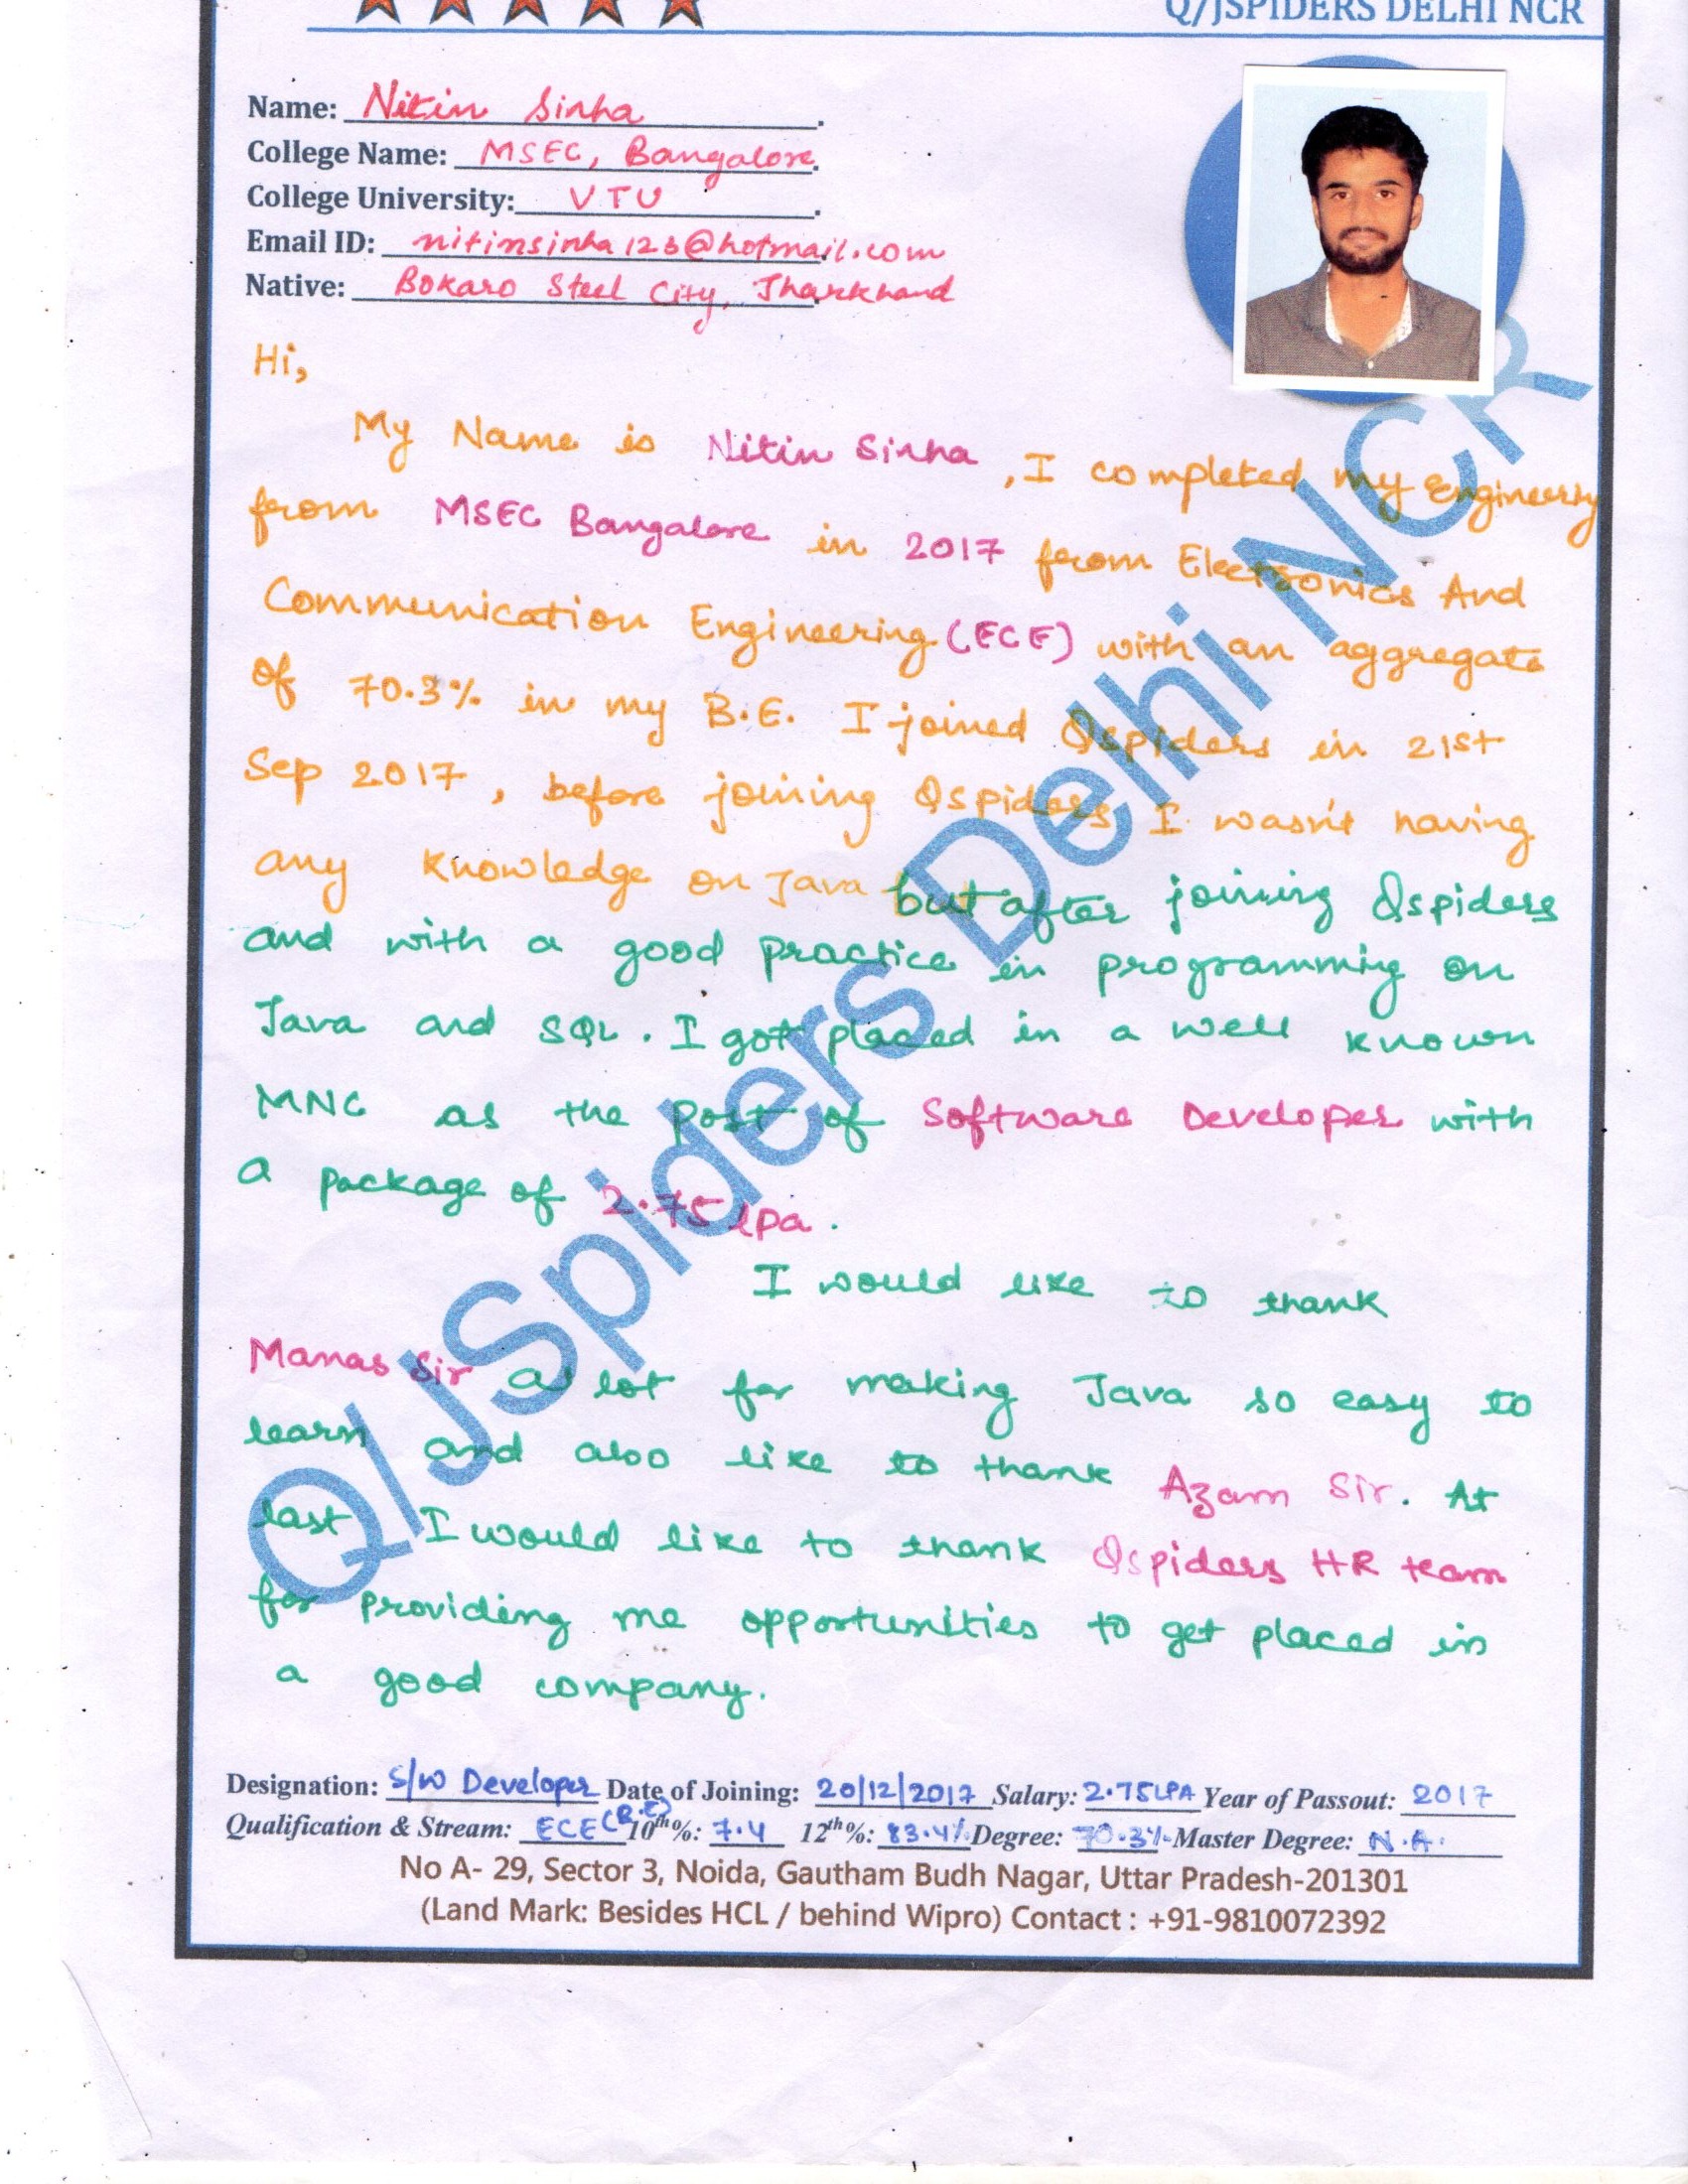 Q/JSPIDERS DELHI NCR
Name: Nitin Sinha
College Name: MSEC, Bangalore
College University: VTU
Email ID: nitinsinha123@hotmail.com
Native: Bokaro Steel City, Jharkhand
Hi,
My Name is Nitin Sinha, I completed my Engineering
from MSEC Bangalore in 2017 from Electronics And
Communication Engineering (ECE) with an aggregate
of 70.3% in my B.E. I joined Qspiders in 21st
Sep 2017, before joining Qspiders I wasn't having
any knowledge on Java but after joining Qspiders
and with a good practice in programming on
Java and SQL. I got placed in a well known
MNC as the post of Software Developer with
a package of 2.75 lpa.
I would like to thank
Manas Sir a lot for making Java so easy to
learn and also like to thank Azam Sir. At
last I would like to thank Qspiders HR team
for providing me opportunities to get placed in
a good company.
Q/JSpiders Delhi NCR
Designation: S/W Developer Date of Joining: 20/12/2017 Salary: 2.75LPA Year of Passout: 2017
Qualification & Stream: ECE (B.E) 10th%: 7.4 12th%: 83.4% Degree: 70.3% Master Degree: N.A.
No A- 29, Sector 3, Noida, Gautham Budh Nagar, Uttar Pradesh-201301
(Land Mark: Besides HCL / behind Wipro) Contact : +91-9810072392